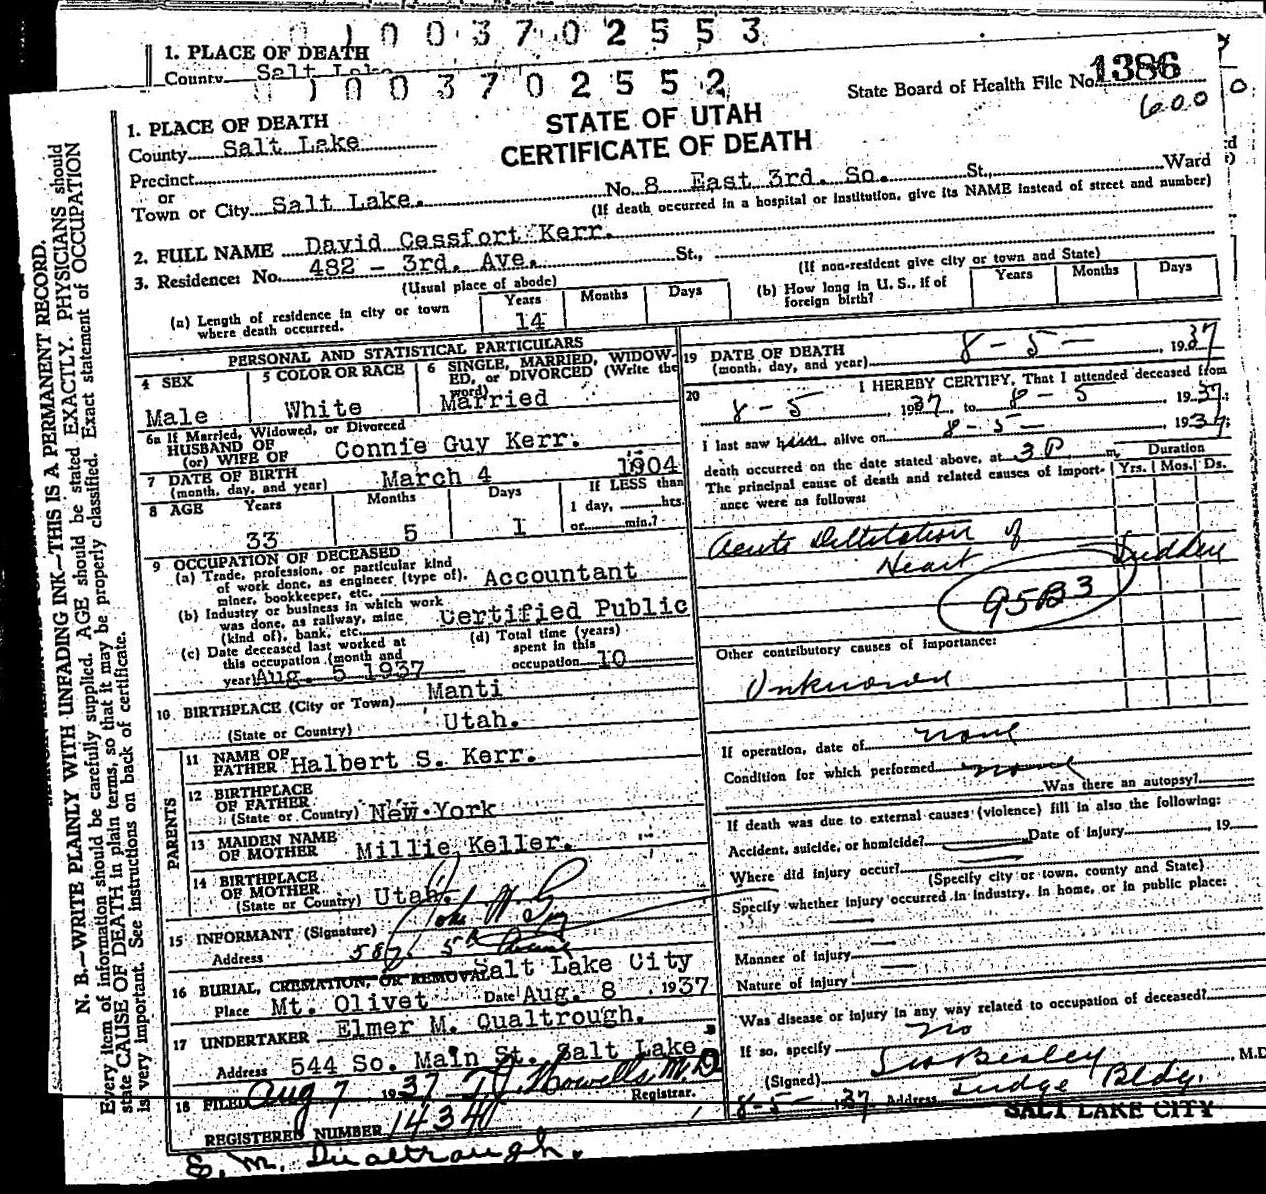 0 1 0 0 3 7 0 2 5 5 3
1. PLACE OF DEATH
County Salt Lake
0 1 0 0 3 7 0 2 5 5 2
State Board of Health File No. 1386
600 0.
STATE OF UTAH
CERTIFICATE OF DEATH
1. PLACE OF DEATH
County Salt Lake
Precinct
or
Town or City Salt Lake. No. 8 East 3rd. So. St., Ward
(If death occurred in a hospital or institution, give its NAME instead of street and number)
2. FULL NAME David Cessfort Kerr.
3. Residence: No. 482 - 3rd. Ave. St.,
(Usual place of abode) (If non-resident give city or town and State)
(a) Length of residence in city or town where death occurred. Years 14 Months Days
(b) How long in U. S., if of foreign birth? Years Months Days
PERSONAL AND STATISTICAL PARTICULARS
4 SEX Male
5 COLOR OR RACE White
6 SINGLE, MARRIED, WIDOWED, or DIVORCED (Write the word) Married
6a If Married, Widowed, or Divorced
HUSBAND OF
(or) WIFE OF Connie Guy Kerr.
7 DATE OF BIRTH
(month, day, and year) March 4 1904
8 AGE Years 33 Months 5 Days 1 If LESS than 1 day, hrs. or min.?
9 OCCUPATION OF DECEASED
(a) Trade, profession, or particular kind of work done, as engineer (type of), miner, bookkeeper, etc. Accountant
(b) Industry or business in which work was done, as railway, mine (kind of), bank, etc. Certified Public
(c) Date deceased last worked at this occupation (month and year) Aug. 5 1937
(d) Total time (years) spent in this occupation 10
10 BIRTHPLACE (City or Town) Manti
(State or Country) Utah.
PARENTS
11 NAME OF FATHER Halbert S. Kerr.
12 BIRTHPLACE OF FATHER
(State or Country) New York
13 MAIDEN NAME OF MOTHER Millie Keller.
14 BIRTHPLACE OF MOTHER
(State or Country) Utah.
15 INFORMANT (Signature) John W Guy
Address 587 5th Avenue
Salt Lake City
16 BURIAL, CREMATION, OR REMOVAL
Place Mt. Olivet Date Aug. 8 1937
17 UNDERTAKER Elmer M. Qualtrough.
Address 544 So. Main St. Salt Lake
18 FILED Aug 7 1937 Howells M.D Registrar.
REGISTERED NUMBER 1434
E. M. Qualtrough.
19 DATE OF DEATH
(month, day, and year) 8 - 5 - , 1937
20 I HEREBY CERTIFY, That I attended deceased from
8 - 5 , 1937 to 8 - 5 , 1937;
I last saw him alive on 8 - 5 - 1937;
death occurred on the date stated above, at 3 P. m.
The principal cause of death and related causes of importance were as follows:
Duration
Yrs. Mos. Ds.
Acute Dilitation of
Heart Sudden
95B3
Other contributory causes of importance:
Unknown
If operation, date of none
Condition for which performed none
Was there an autopsy?
If death was due to external causes (violence) fill in also the following:
Accident, suicide, or homicide? Date of injury , 19
Where did injury occur?
(Specify city or town, county and State)
Specify whether injury occurred in industry, in home, or in public place:
Manner of injury
Nature of injury
Was disease or injury in any way related to occupation of deceased?
No
If so, specify
(Signed) Beasley , M.D
8-5- 1937 Address Judge Bldg.
SALT LAKE CITY
N. B.—WRITE PLAINLY WITH UNFADING INK—THIS IS A PERMANENT RECORD.
Every item of information should be carefully supplied. AGE should be stated EXACTLY. PHYSICIANS should
state CAUSE OF DEATH in plain terms, so that it may be properly classified. Exact statement of OCCUPATION
is very important. See instructions on back of certificate.